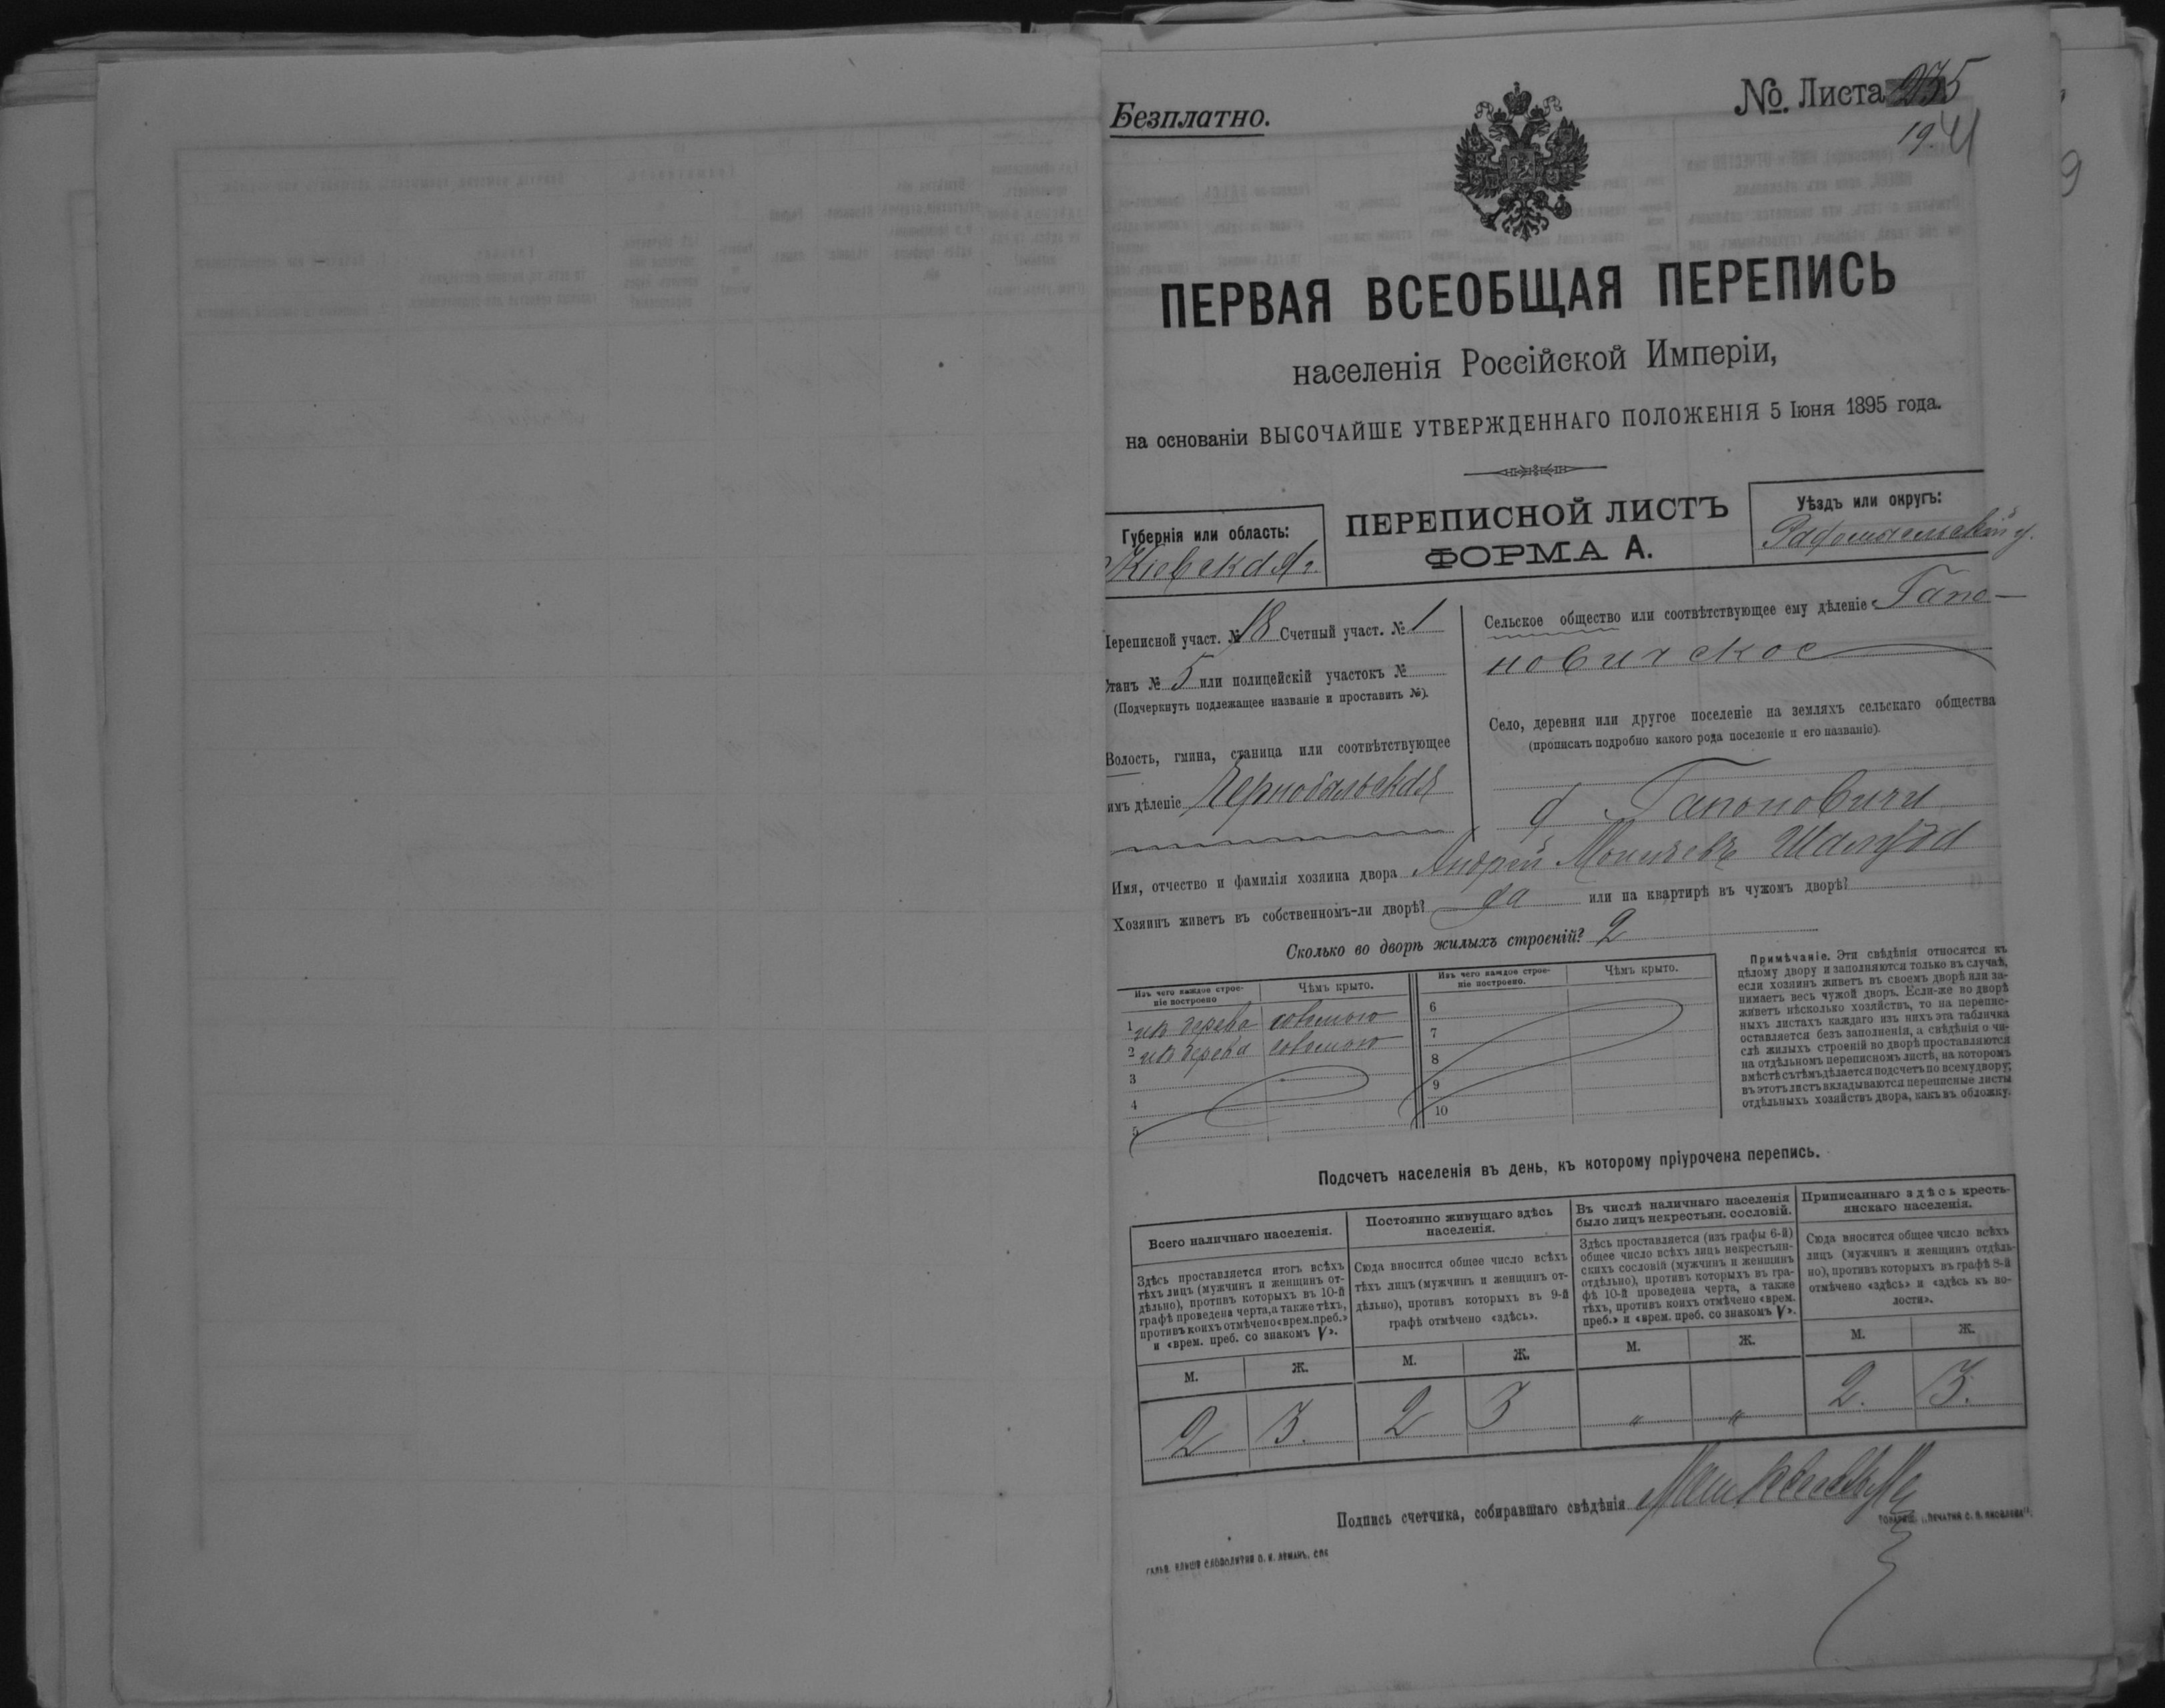 Безплатно.
№ Листа 235
19.
41
ПЕРВАЯ ВСЕОБЩАЯ ПЕРЕПИСЬ
населенія Россійской Имперіи,
на основаніи ВЫСОЧАЙШЕ УТВЕРЖДЕННАГО ПОЛОЖЕНІЯ 5 Іюня 1895 года.
Губернія или область:
Кіевская г.
ПЕРЕПИСНОЙ ЛИСТЪ
ФОРМА А.
Уѣздъ или округъ:
Радомысльскій у.
Переписной участ. № 18 Счетный участ. № 1
Станъ № 5 или полицейскій участокъ №
(Подчеркнуть подлежащее названіе и проставить №).
Волость, гмина, станица или соотвѣтствующее
имъ дѣленіе Чернобыльская
Сельское общество или соотвѣтствующее ему дѣленіе Гапо-
новичское
Село, деревня или другое поселеніе на земляхъ сельскаго общества
(прописать подробно какого рода поселеніе и его названіе).
д Гапоновичи
Имя, отчество и фамилія хозяина двора Андрей
Хозяинъ живетъ въ собственномъ-ли дворѣ? да или на квартирѣ въ чужомъ дворѣ?
Сколько во дворѣ жилыхъ строеній? 2
Изъ чего каждое строе-
ніе построено
Чѣмъ крыто.
1 изъ дерева соломою
2 изъ дерева соломою
3
4
5
Изъ чего каждое строе-
ніе построено.
Чѣмъ крыто.
6
7
8
9
10
Примѣчаніе. Эти свѣдѣнія относятся къ
цѣлому двору и заполняются только въ случаѣ,
если хозяинъ живетъ въ своемъ дворѣ или за-
нимаетъ весь чужой дворъ. Если-же во дворѣ
живетъ нѣсколько хозяйствъ, то на перепис-
ныхъ листахъ каждаго изъ нихъ эта табличка
оставляется безъ заполненія, а свѣдѣнія о чи-
слѣ жилыхъ строеній во дворѣ проставляются
на отдѣльномъ переписномъ листѣ, на которомъ
вмѣстѣ съ тѣмъ дѣлается подсчетъ по всему двору;
въ этотъ листъ вкладываются переписные листы
отдѣльныхъ хозяйствъ двора, какъ въ обложку.
Подсчетъ населенія въ день, къ которому пріурочена перепись.
Всего наличнаго населенія.
Здѣсь проставляется итогъ всѣхъ
тѣхъ лицъ (мужчинъ и женщинъ от-
дѣльно), противъ которыхъ въ 10-й
графѣ проведена черта, а также тѣхъ,
противъ коихъ отмѣчено «врем. преб.»
и «врем. преб. со знакомъ V».
М. Ж.
2 3.
Постоянно живущаго здѣсь
населенія.
Сюда вносится общее число всѣхъ
тѣхъ лицъ (мужчинъ и женщинъ от-
дѣльно), противъ которыхъ въ 9-й
графѣ отмѣчено «здѣсь».
М. Ж.
2 3
Въ числѣ наличнаго населенія
было лицъ некрестьян. сословій.
Здѣсь проставляется (изъ графы 6-й)
общее число всѣхъ лицъ некрестьян-
скихъ сословій (мужчинъ и женщинъ
отдѣльно), противъ которыхъ въ гра-
фѣ 10-й проведена черта, а также
тѣхъ, противъ коихъ отмѣчено «врем.
преб.» и «врем. преб. со знакомъ V».
М. Ж.
" "
Приписаннаго здѣсь кресть-
янскаго населенія.
Сюда вносится общее число всѣхъ
лицъ (мужчинъ и женщинъ отдѣль-
но), противъ которыхъ въ графѣ 8-й
отмѣчено «здѣсь» и «здѣсь къ во-
лости».
М. Ж.
2. 3.
Подпись счетчика, собиравшаго свѣдѣнія
ТОВАРИЩ. „ПЕЧАТНЯ С. П. ЯКОВЛЕВА".
ГАЛЬВ. КЛИШЕ СЛОВОЛИТНИ О. И. ЛЕМАНЪ. СПБ